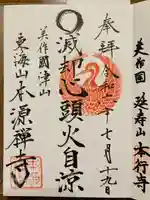 奉拝 令和二年七月十九日
滅却心頭火自涼
美作国津山
東海山本源禅寺
美作国 延寿山 本行寺